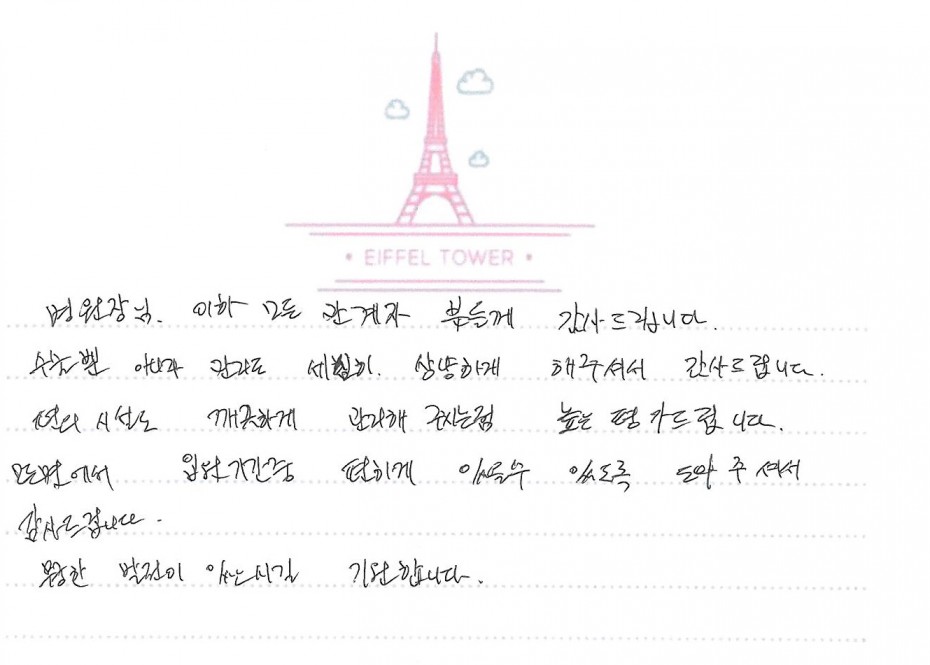 • EIFFEL TOWER •
병원장님. 이하 모든 관계자 분들께 감사드립니다.
수술뿐 아니라 관리도 세심히. 상냥하게 해주셔서 감사드립니다.
편의 시설도 깨끗하게 관리해 주시는점 높은 평가드립니다.
모든면에서 입원기간중 편하게 있을수 있도록 도와 주셔서
감사드립니다.
무궁한 발전이 있으시길 기원합니다.